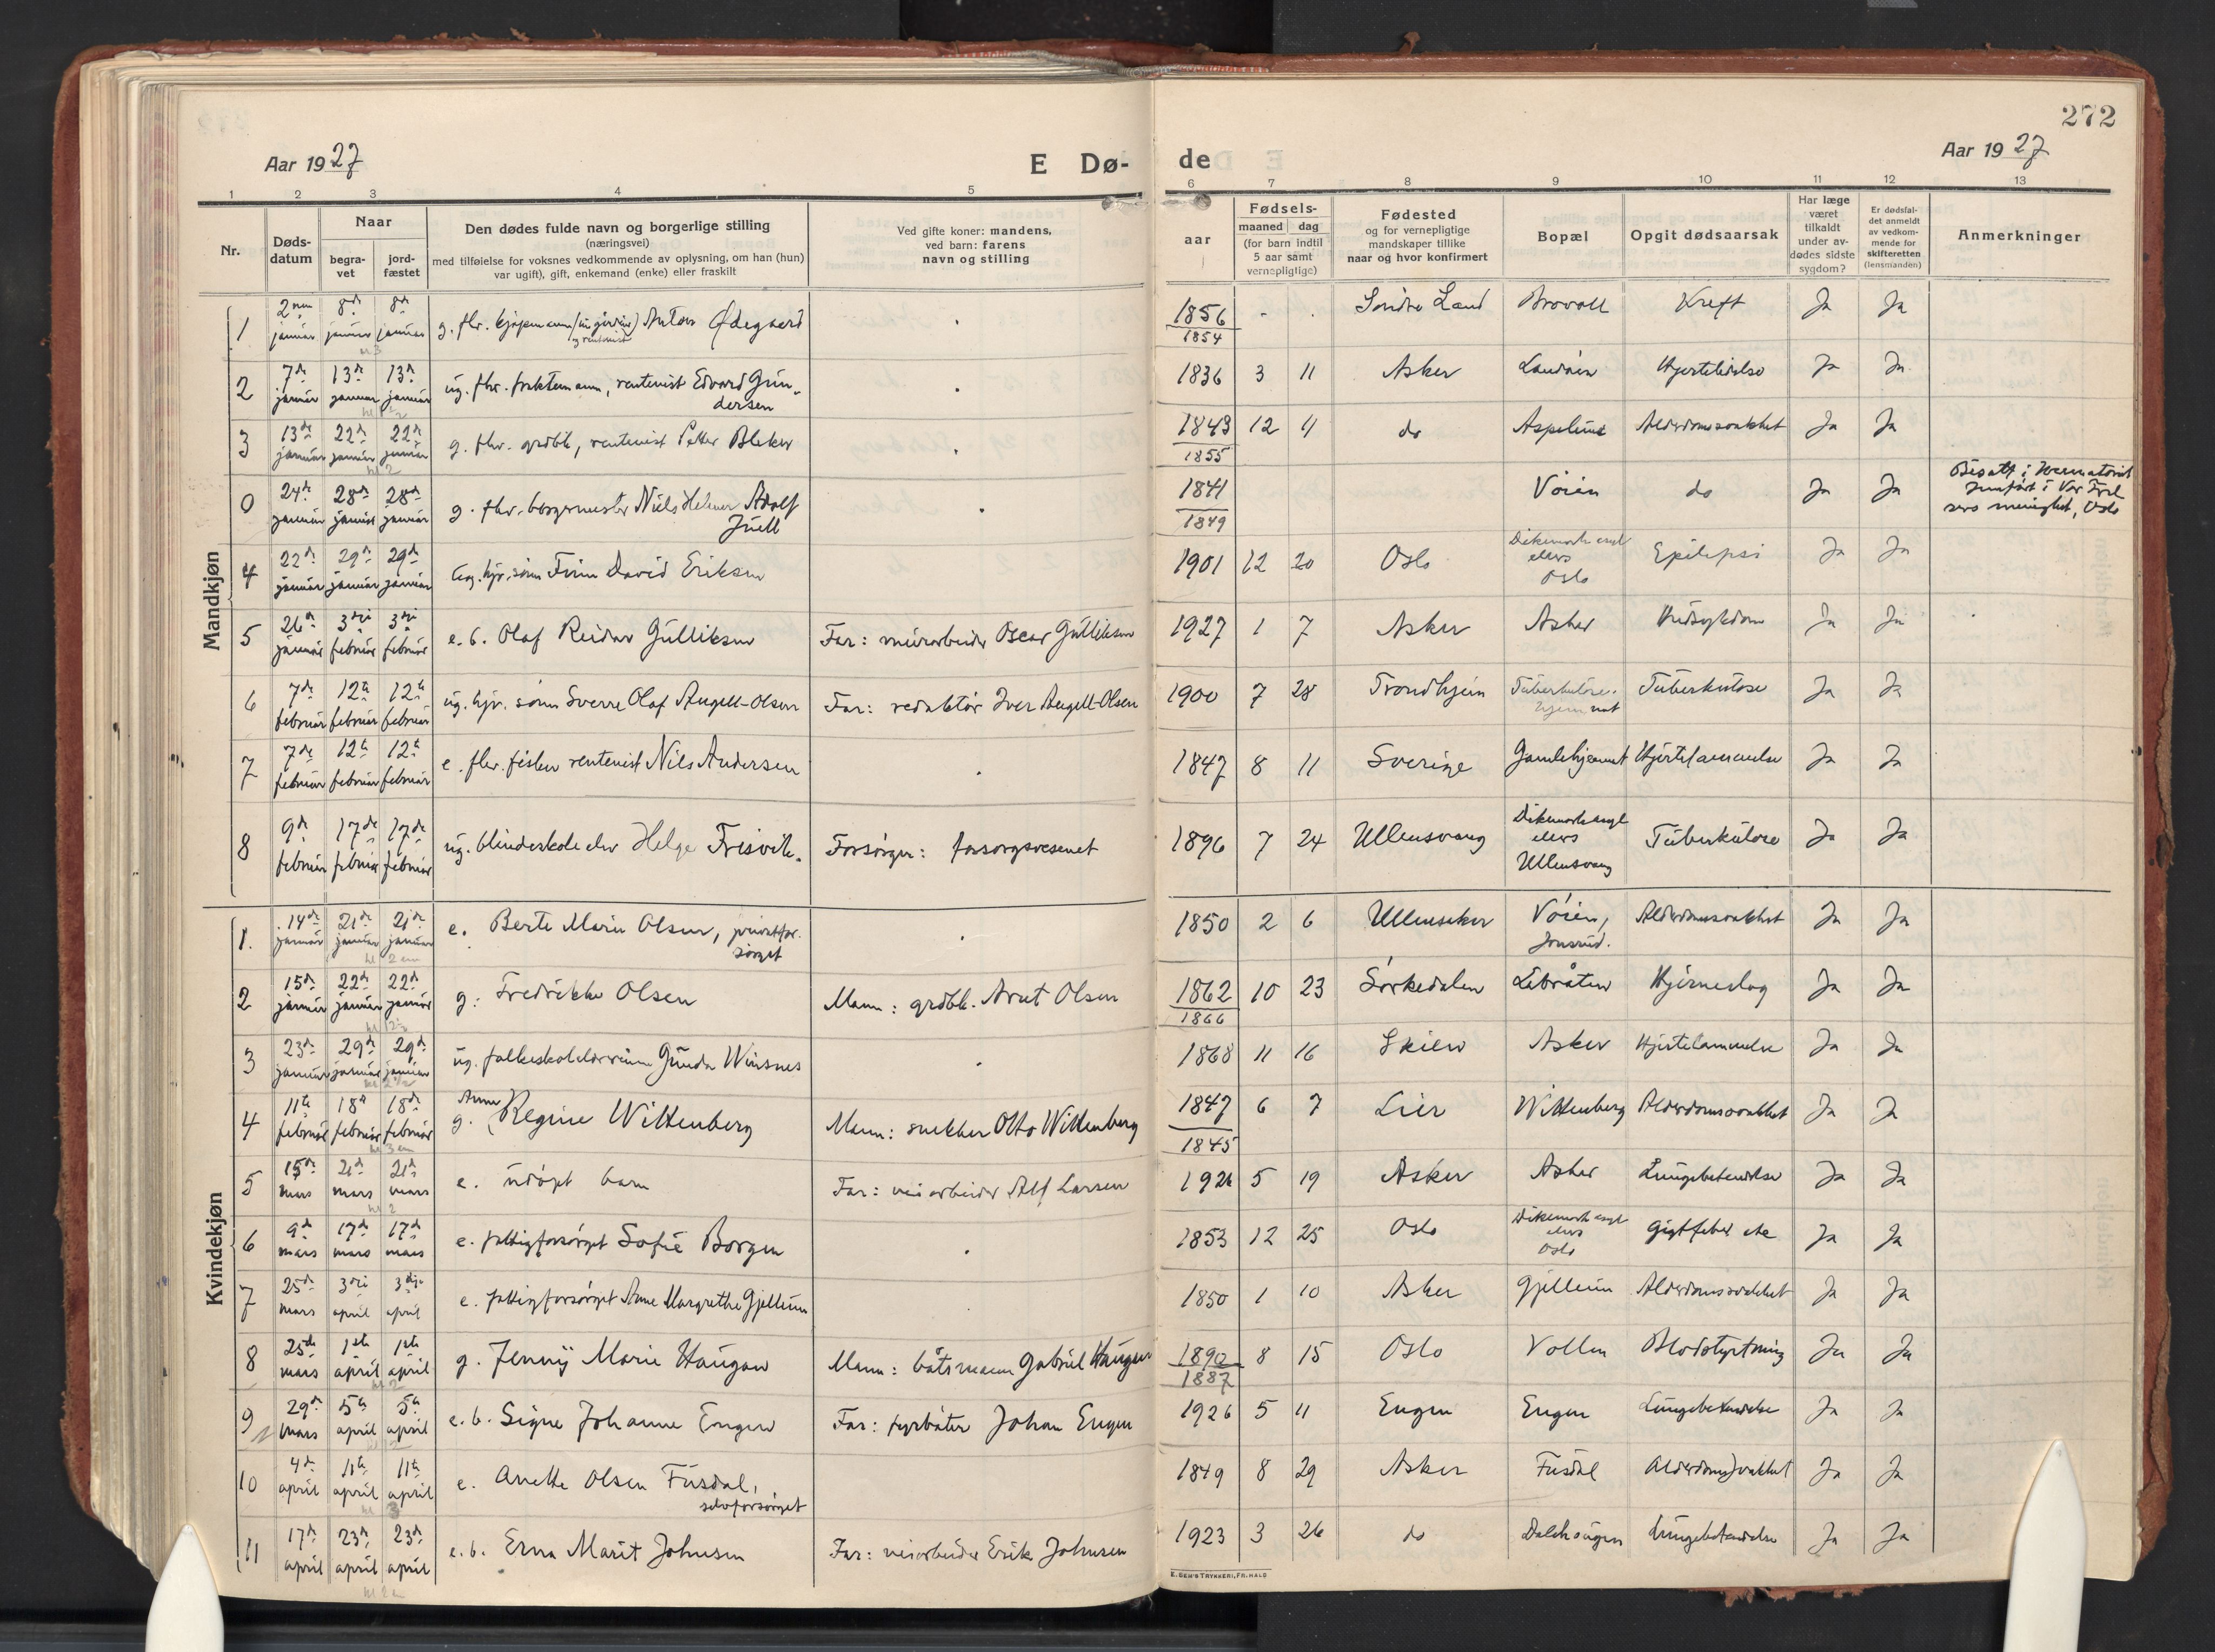 272
Aar 1927
E Dø-
de
Aar 1927
1 2 3 4 5
6 7 8 9 10 11 12 13
Nr.
Døds-
datum
Naar
begra-
vet
jord-
fæstet
Den dødes fulde navn og borgerlige stilling
(næringsvei)
med tilføielse for voksnes vedkommende av oplysning, om han (hun)
var ugift), gift, enkemand (enke) eller fraskilt
Ved gifte koner: mandens,
ved barn: farens
navn og stilling
Fødsels-
aar
maaned dag
(for barn indtil
5 aar samt
vernepligtige)
Fødested
og for vernepligtige
mandskaper tillike
naar og hvor konfirmert
Bopæl
Opgit dødsaarsak
Har læge
været
tilkaldt
under av-
dødes sidste
sygdom?
Er dødsfal-
det anmeldt
av vedkom-
mende for
skifteretten
(lensmanden)
Anmerkninger
Mandkjøn
1 januar 8de januar 8de januar g. fhv. Anton Ødegaard 1856 Søndre Land Kreft Ja Ja
1854
2 7de januar 13de januar 13de januar ug. fhv. rentenist Edvard Gun-
dersen 1836 3 11 Asker Landøen Hjertelidelse Ja Ja
3 13de januar 22de januar 22de januar g. fhv. grdbr., rentenist Petter Bleker 1843 12 4 do Aspelund Alderdomssvakhet Ja Ja
1855
0 24de januar 28de januar 28de januar g. fhv. borgermester Niels Adolf
Juell 1841 Vøien do Ja Ja Besatt i krematoriet
Jernført i Vor Frel
sers menighet, Oslo
1849
4 22de januar 29de januar 29de januar hjv. sønn Finn David Eriksen 1901 12 20 Oslo Dikemark asyl
ellers
Oslo Epilepsi Ja Ja
5 26de januar 3die februar 3die februar e. b. Olaf Reidar Gulliksen Far: murarbeider Oscar Gulliksen 1927 1 7 Asker Asker Ja Ja
6 7de februar 12te februar 12te februar ug. hjv. sønn Sverre Olaf Angell-Olsen Far: redaktør Iver Angell-Olsen 1900 7 28 Trondhjem Tuberkulose-
hjemmet Tuberkulose Ja Ja
7 7de februar 12te februar 12te februar e. fhv. fisker rentenist Nils Andersen 1847 8 11 Sverige Gamlehjemmet Hjertelammelse Ja Ja
8 9de februar 17de februar 17de februar ug. blindeskoleelev Helge Frisvik. Forsørger: forsorgsvesenet 1896 7 24 Ullensvang Dikemark asyl
ellers
Ullensvang Tuberkulose Ja Ja
Kvindekjøn
1. 14de januar 21de januar 21de januar e. Berte Marie Olsen, privatfor-
sørget 1850 2 6 Ullensaker Vøien,
Jonsrud. Alderdomssvakhet Ja Ja
2 15de januar 22de januar 22de januar g. Fredrikke Olsen Mann: grdbr. Arnt Olsen 1862 10 23 Sørkedalen Libråten Hjerneslag Ja Ja
1866
3 23de januar 29de januar 29de januar ug. folkeskolelærerinne Gunda Winsnes 1868 11 16 Skien Asker Hjertelammelse Ja Ja
4 11te februar 18de februar 18de februar g. Anne Regine Wittenberg Mann: snekker Otto Wittenberg 1847 6 7 Lier Wittenberg Alderdomssvakhet Ja Ja
1845
5 15de mars 21de mars 21de mars e. udøpt barn Far: veiarbeider Alf Larsen 1926 5 19 Asker Asker Lungebetendelse Ja Ja
6 9de mars 17de mars 17de mars e. fattigforsørget Sofie Borgen 1853 12 25 Oslo Dikemark asyl
ellers
Oslo Gigtfeber Ja Ja
7 25de mars 3die april 3dje april e. fattigforsørget Anne Margrethe Gjellum 1850 1 10 Asker Gjellum Alderdomssvakhet Ja Ja
8 25de mars 1ste april 1ste april g. Jenny Marie Haugan Mann: båtsmann Gabriel Haugan 1890 8 15 Oslo Vollen Blodstyrtning Ja Ja
1887
9 29de mars 5te april 5te april e. b. Signe Johanne Engen Far: fyrbøter Johan Engen 1926 5 11 Engen Engen Lungebetendelse Ja Ja
10 4de april 11te april 11te april e. Anette Olsen Fusdal,
selvforsørget 1849 8 29 Asker Fusdal Alderdomssvakhet Ja Ja
11 17de april 23de april 23de april e. b. Erna Marit Johnsen Far: veiarbeider Erik Johnsen 1923 3 26 do Lungebetendelse Ja Ja
E. SEM'S TRYKKERI, FR.HALD